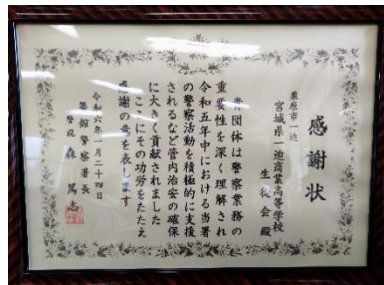 感謝状
栗原市一迫
宮城県一迫商業高等学校
生徒会殿
貴団体は警察業務の
重要性を深く理解され
令和五年中における当署
の警察活動を積極的に支援
されるなど管内治安の確保
に大きく貢献されました
ここにその功労をたたえ
感謝の意を表します
令和六年一月二十四日
築館警察署長
警視 森 篤志